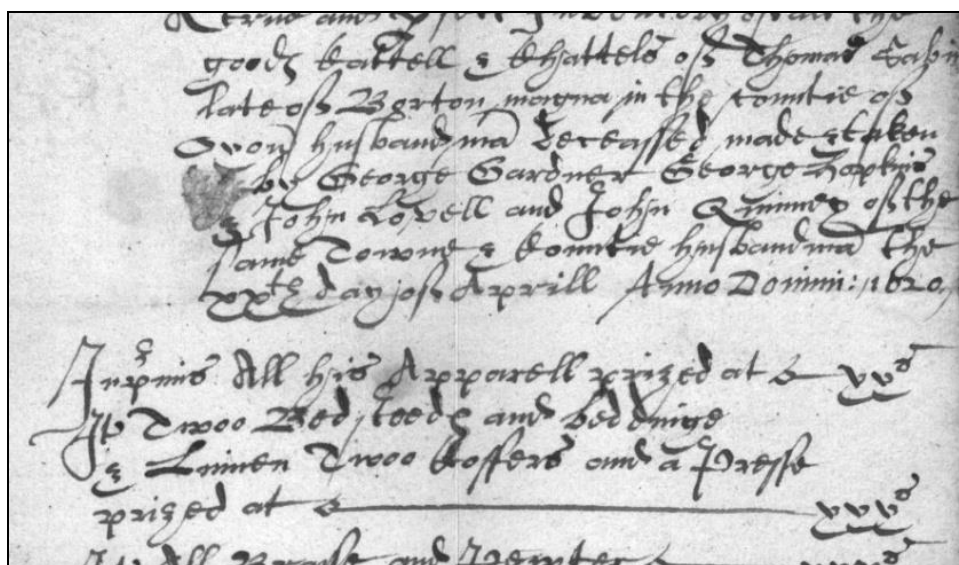 A true and pfect Inventory of all the
goods Cattell & Chattels off Thomas
late off Borton magna in the Countie off
Oxon husbandma deceassed made & taken
by George Gardner George Hopkis
& John Lovell and John Quinney off the
same Towne & Countie husbandma the
xxth day off Aprill Anno Domini: 1620
Inpmis All his Apparell prized at xxs
It Twoo Bedsteeds and beddinge
& Linnen Twoo Coffers and a Presse
prized at xxxs
It All Brasse and Pewter